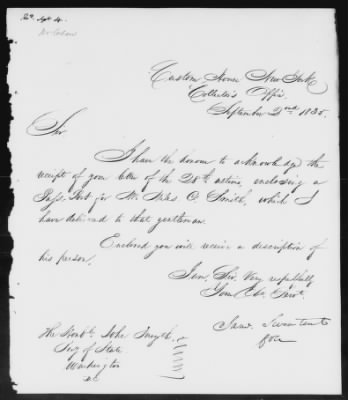 Custom House New York
Collector's Office
September 2nd 1835.
Sir
I have the honour to acknowledge the
receipt of your letter of the 28th ultimo, enclosing a
Pass Port for Mr. C. Smith, which I
have delivered to that gentleman.
Enclosed you will receive a description of
his person.
I am, Sir, Very respectfully
Your Obt. Servt.
Saml. Swartwout
The Honble. John Forsyth
Secy of State
Washington
D.C.